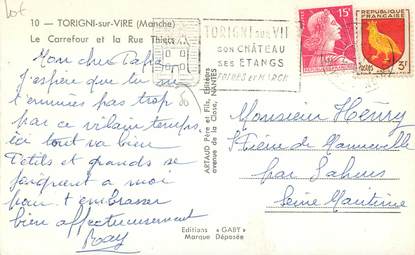 lot
10 — TORIGNI-sur-VIRE (Manche)
Le Carrefour et la Rue Thiers
Mon cher Papa
j'espère que tu ne
t'ennuies pas trop
par ce vilain temps,
ici tout va bien
Petits et grands se
joignent a moi
pour t'embrasser
bien affectueusement
ARTAUD Père et Fils, Editeurs
avenue de la Close, NANTES
Editions « GABY »
Marque Déposée
TORIGNI SUR VIRE
SON CHÂTEAU
SES ÉTANGS
FOIRES ET MARCH
15F
RÉPUBLIQUE
FRANÇAISE
Postes 3F
Monsieur Henry
par Sahurs
Seine Maritime